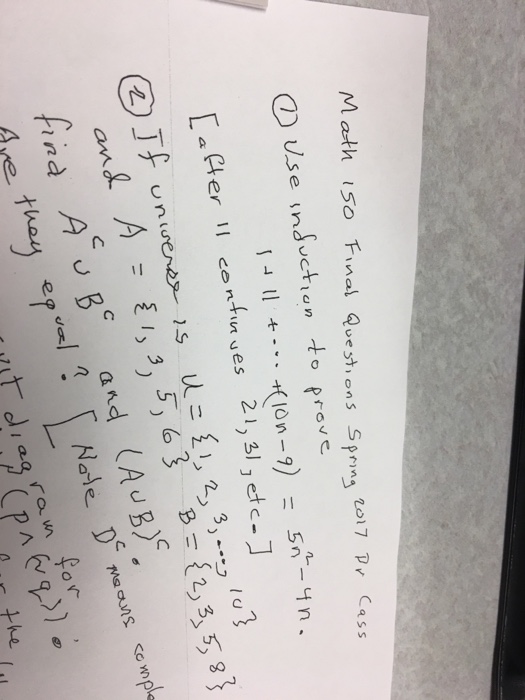 Math 150 Final Questions Spring 2017 Dr Cass
① Use induction to prove
1 + 11 + ··· + (10n-9) = 5n² - 4n.
[after 11 continues 21, 31, etc.]
② If universe is U = {1, 2, 3, ..., 10}
and A = {1, 3, 5, 6} B = {2, 3, 5, 8}
find Aᶜ ∪ Bᶜ and (A∪B)ᶜ.
Are they equal? [Note Dᶜ means
diagram for
(p ∧ (~q)).
the